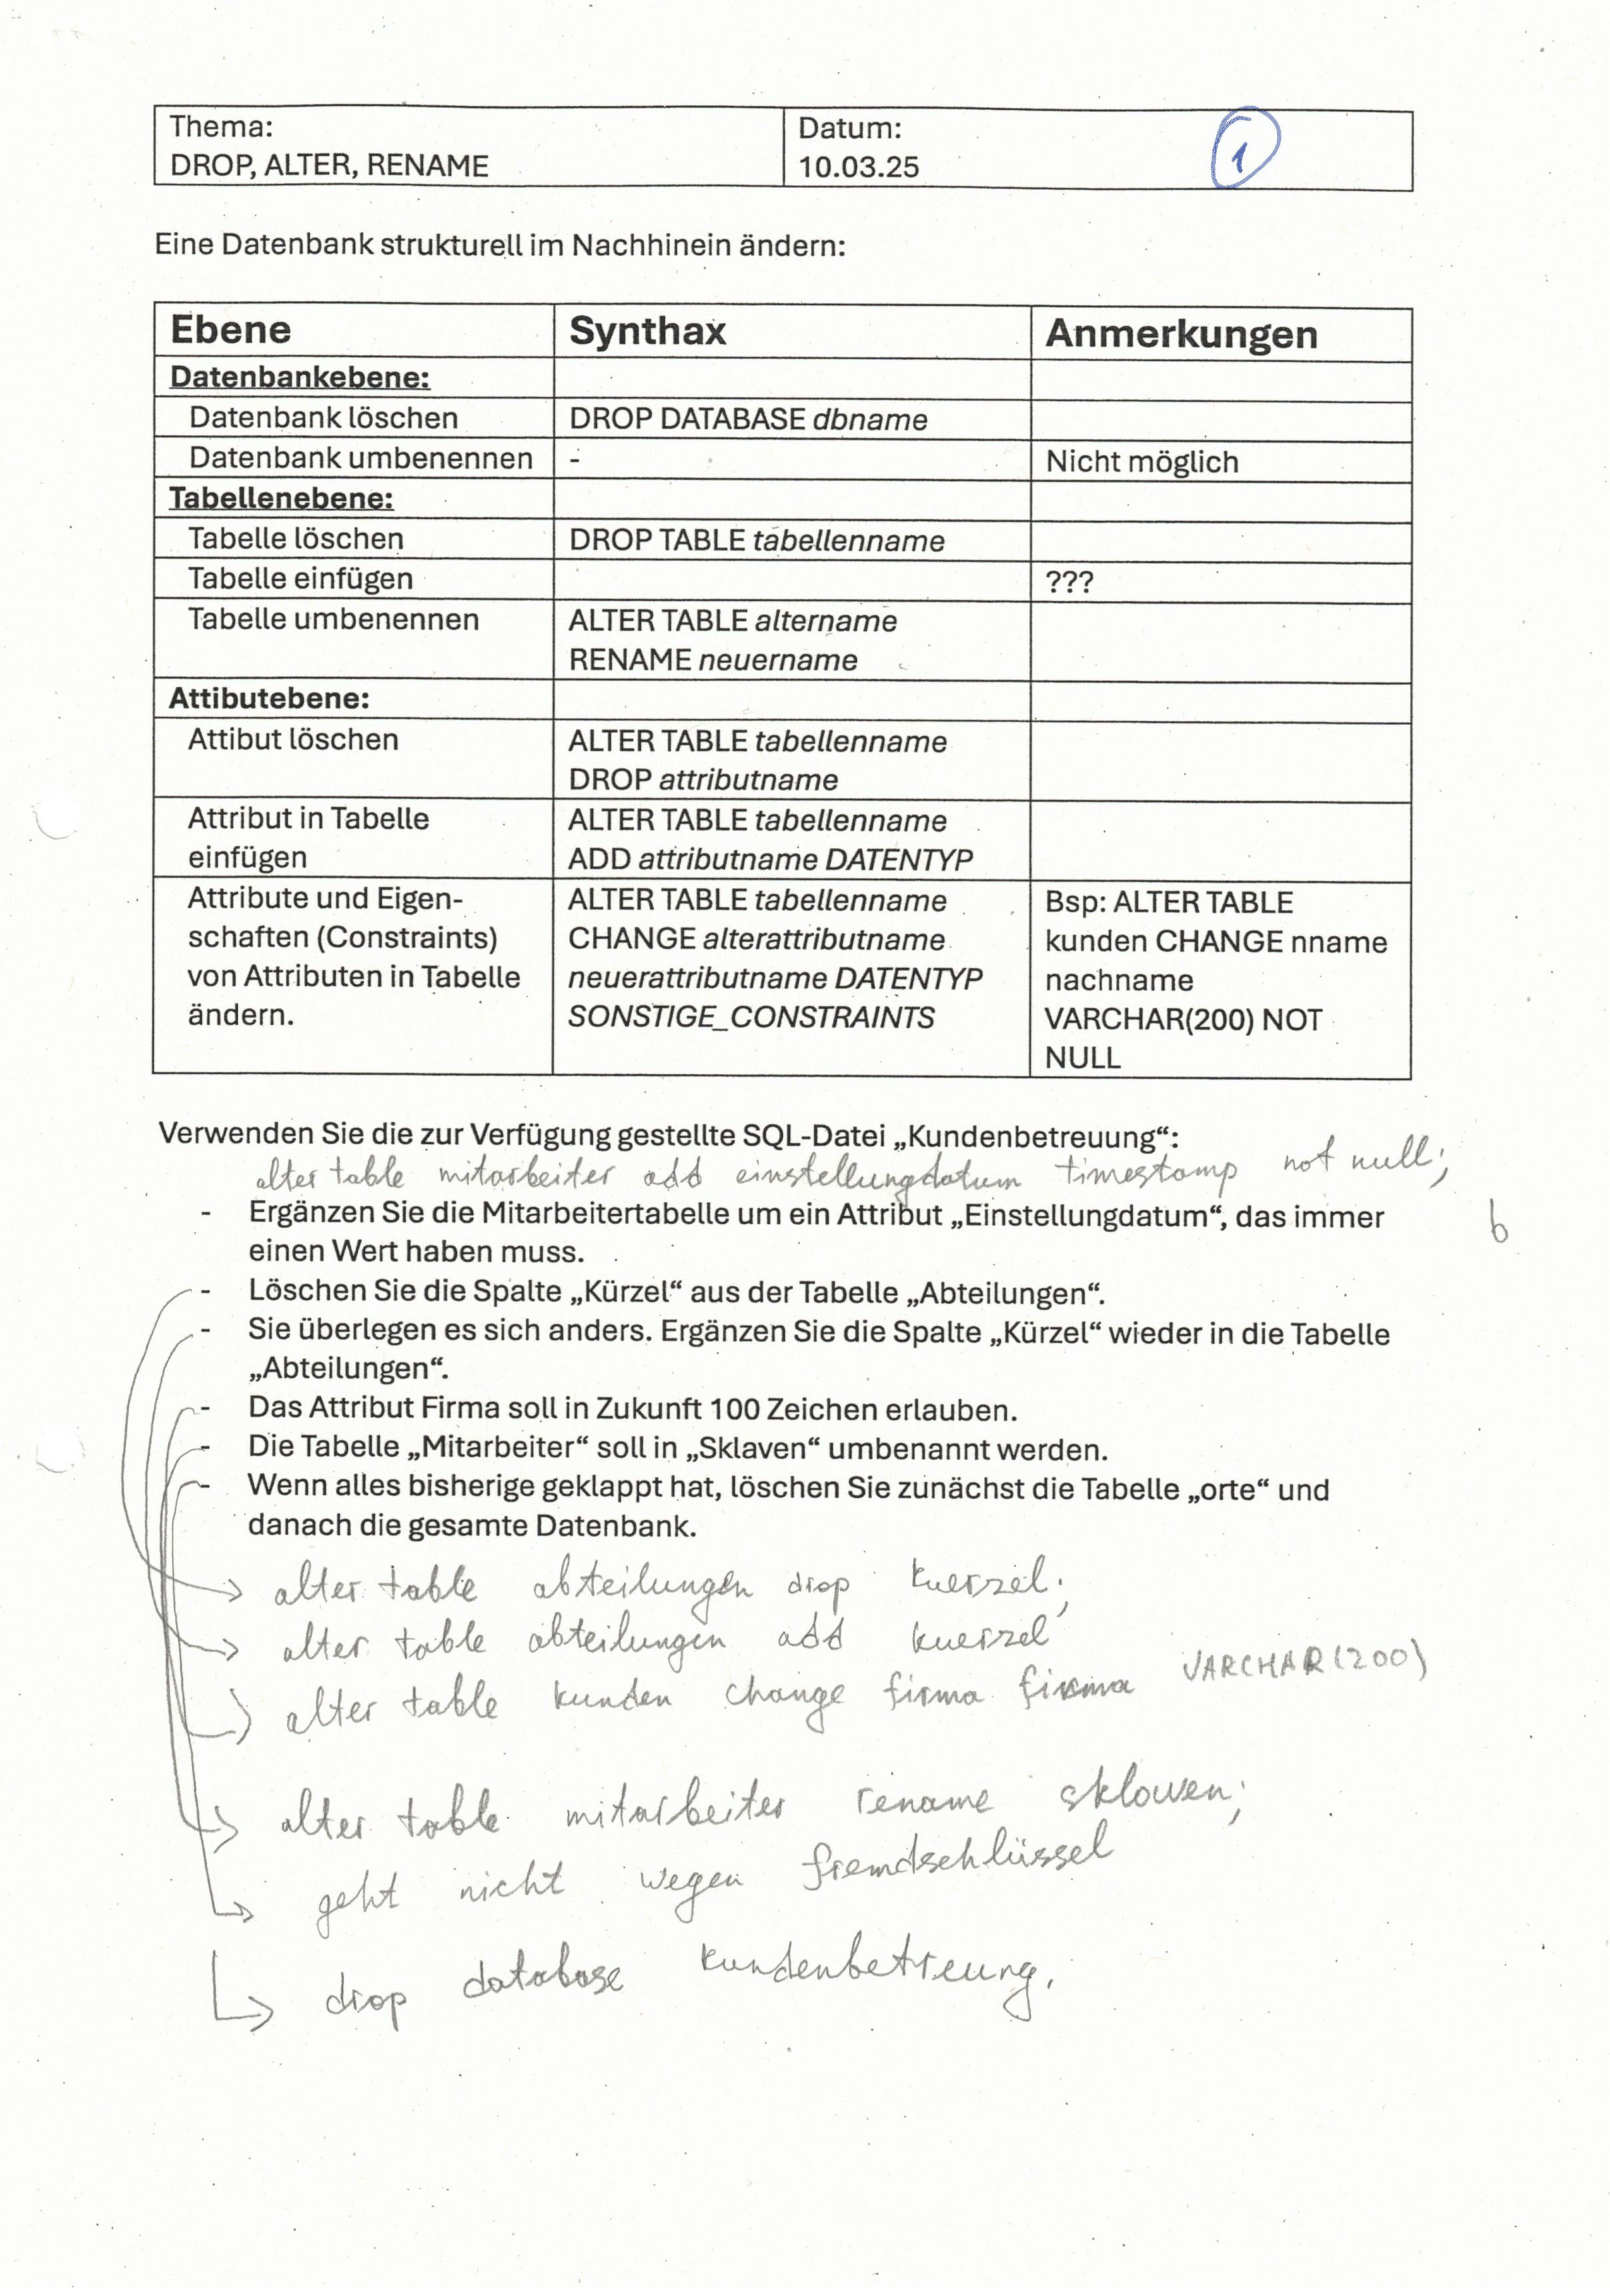 Thema:
DROP, ALTER, RENAME
Datum:
10.03.25
1
Eine Datenbank strukturell im Nachhinein ändern:
Ebene Synthax Anmerkungen
Datenbankebene:
Datenbank löschen DROP DATABASE dbname
Datenbank umbenennen - Nicht möglich
Tabellenebene:
Tabelle löschen DROP TABLE tabellenname
Tabelle einfügen ???
Tabelle umbenennen ALTER TABLE altername
RENAME neuername
Attibutebene:
Attibut löschen ALTER TABLE tabellenname
DROP attributname
Attribut in Tabelle ALTER TABLE tabellenname
einfügen ADD attributname DATENTYP
Attribute und Eigen- ALTER TABLE tabellenname Bsp: ALTER TABLE
schaften (Constraints) CHANGE alterattributname kunden CHANGE nname
von Attributen in Tabelle neuerattributname DATENTYP nachname
ändern. SONSTIGE_CONSTRAINTS VARCHAR(200) NOT
NULL
Verwenden Sie die zur Verfügung gestellte SQL-Datei „Kundenbetreuung“:
alter table mitarbeiter add einstellungdatum timestamp not null;
- Ergänzen Sie die Mitarbeitertabelle um ein Attribut „Einstellungdatum“, das immer
einen Wert haben muss.
b
- Löschen Sie die Spalte „Kürzel“ aus der Tabelle „Abteilungen“.
- Sie überlegen es sich anders. Ergänzen Sie die Spalte „Kürzel“ wieder in die Tabelle
„Abteilungen“.
- Das Attribut Firma soll in Zukunft 100 Zeichen erlauben.
- Die Tabelle „Mitarbeiter“ soll in „Sklaven“ umbenannt werden.
- Wenn alles bisherige geklappt hat, löschen Sie zunächst die Tabelle „orte“ und
danach die gesamte Datenbank.
alter table abteilungen drop kuerzel;
alter table abteilungen add kuerzel
alter table kunden change firma firma VARCHAR(200)
alter table mitarbeiter rename sklaven;
geht nicht wegen fremdschlüssel
drop database kundenbetreung.